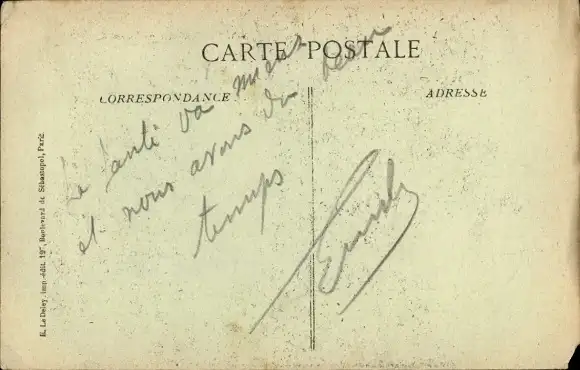 CARTE POSTALE
CORRESPONDANCE
ADRESSE
La santé va mieux
et nous avons du beau
temps
E. Le Deley, imp.-édit. 127, Boulevard de Sébastopol, Paris.